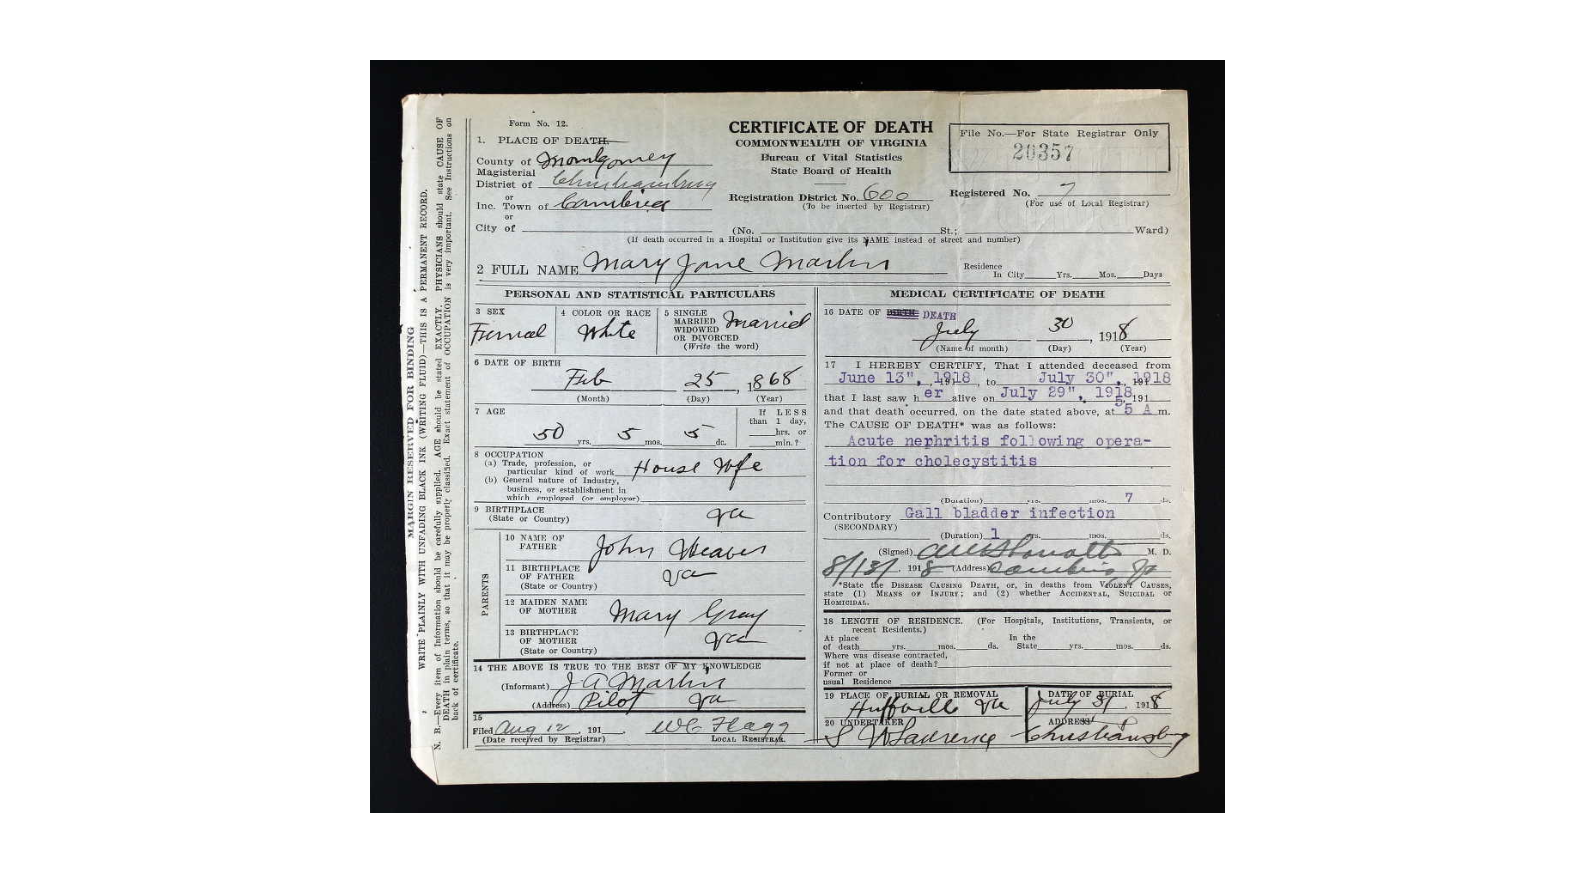 Form No. 12.
1. PLACE OF DEATH.
County of Montgomery
Magisterial
District of Christiansburg
or
Inc. Town of Cambria
or
City of
CERTIFICATE OF DEATH
COMMONWEALTH OF VIRGINIA
Bureau of Vital Statistics
State Board of Health
Registration District No. 600
(To be inserted by Registrar)
File No.—For State Registrar Only
20357
Registered No. 7
(For use of Local Registrar)
(No. St.; Ward)
(If death occurred in a Hospital or Institution give its NAME instead of street and number)
2 FULL NAME Mary Jane Martin
Residence
In City Yrs. Mos. Days
PERSONAL AND STATISTICAL PARTICULARS
3 SEX
Femal
4 COLOR OR RACE
White
5 SINGLE
MARRIED
WIDOWED
OR DIVORCED
(Write the word)
Married
6 DATE OF BIRTH
Feb 25, 1868
(Month) (Day) (Year)
7 AGE
50 yrs. 5 mos. 5 ds.
If LESS
than 1 day,
hrs. or
min.?
8 OCCUPATION
(a) Trade, profession, or
particular kind of work House Wife
(b) General nature of Industry,
business, or establishment in
which employed (or employer)
9 BIRTHPLACE
(State or Country) Va
PARENTS
10 NAME OF
FATHER John Weaver
11 BIRTHPLACE
OF FATHER Va
(State or Country)
12 MAIDEN NAME
OF MOTHER Mary Gray
13 BIRTHPLACE
OF MOTHER Va
(State or Country)
14 THE ABOVE IS TRUE TO THE BEST OF MY KNOWLEDGE
(Informant) J A Martin
(Address) Pilot Va
15
Filed Aug 12 191 W C Flagg
(Date received by Registrar) LOCAL REGISTRAR.
MEDICAL CERTIFICATE OF DEATH
16 DATE OF DEATH
July 30, 1918
(Name of month) (Day) (Year)
17 I HEREBY CERTIFY, That I attended deceased from
June 13", 1918, to July 30", 1918
that I last saw her alive on July 29", 1918, 191
and that death occurred, on the date stated above, at 5 A m.
The CAUSE OF DEATH* was as follows:
Acute nephritis following opera-
tion for cholecystitis
(Duration) yrs. mos. 7 ds.
Contributory Gall bladder infection
(SECONDARY)
(Duration) 1 yrs. mos. ds.
(Signed) M. D.
8/13/, 1918 (Address) Cambria Va
*State the DISEASE CAUSING DEATH, or, in deaths from VIOLENT CAUSES,
state (1) MEANS OF INJURY; and (2) whether ACCIDENTAL, SUICIDAL or
HOMICIDAL.
18 LENGTH OF RESIDENCE. (For Hospitals, Institutions, Transients, or
recent Residents.)
At place In the
of death yrs. mos. ds. State yrs. mos. ds.
Where was disease contracted,
if not at place of death?
Former or
usual Residence
19 PLACE OF BURIAL OR REMOVAL
Huffville Va
DATE OF BURIAL
July 31, 1918
20 UNDERTAKER
S W Lawrence
ADDRESS
Christiansburg
MARGIN RESERVED FOR BINDING
WRITE PLAINLY WITH UNFADING BLACK INK (WRITING FLUID)—THIS IS A PERMANENT RECORD.
N. B.—Every item of Information should be carefully supplied. AGE should be stated EXACTLY. PHYSICIANS should state CAUSE OF
DEATH in plain terms, so that it may be properly classified. Exact statement of OCCUPATION is very important. See Instructions on
back of certificate.